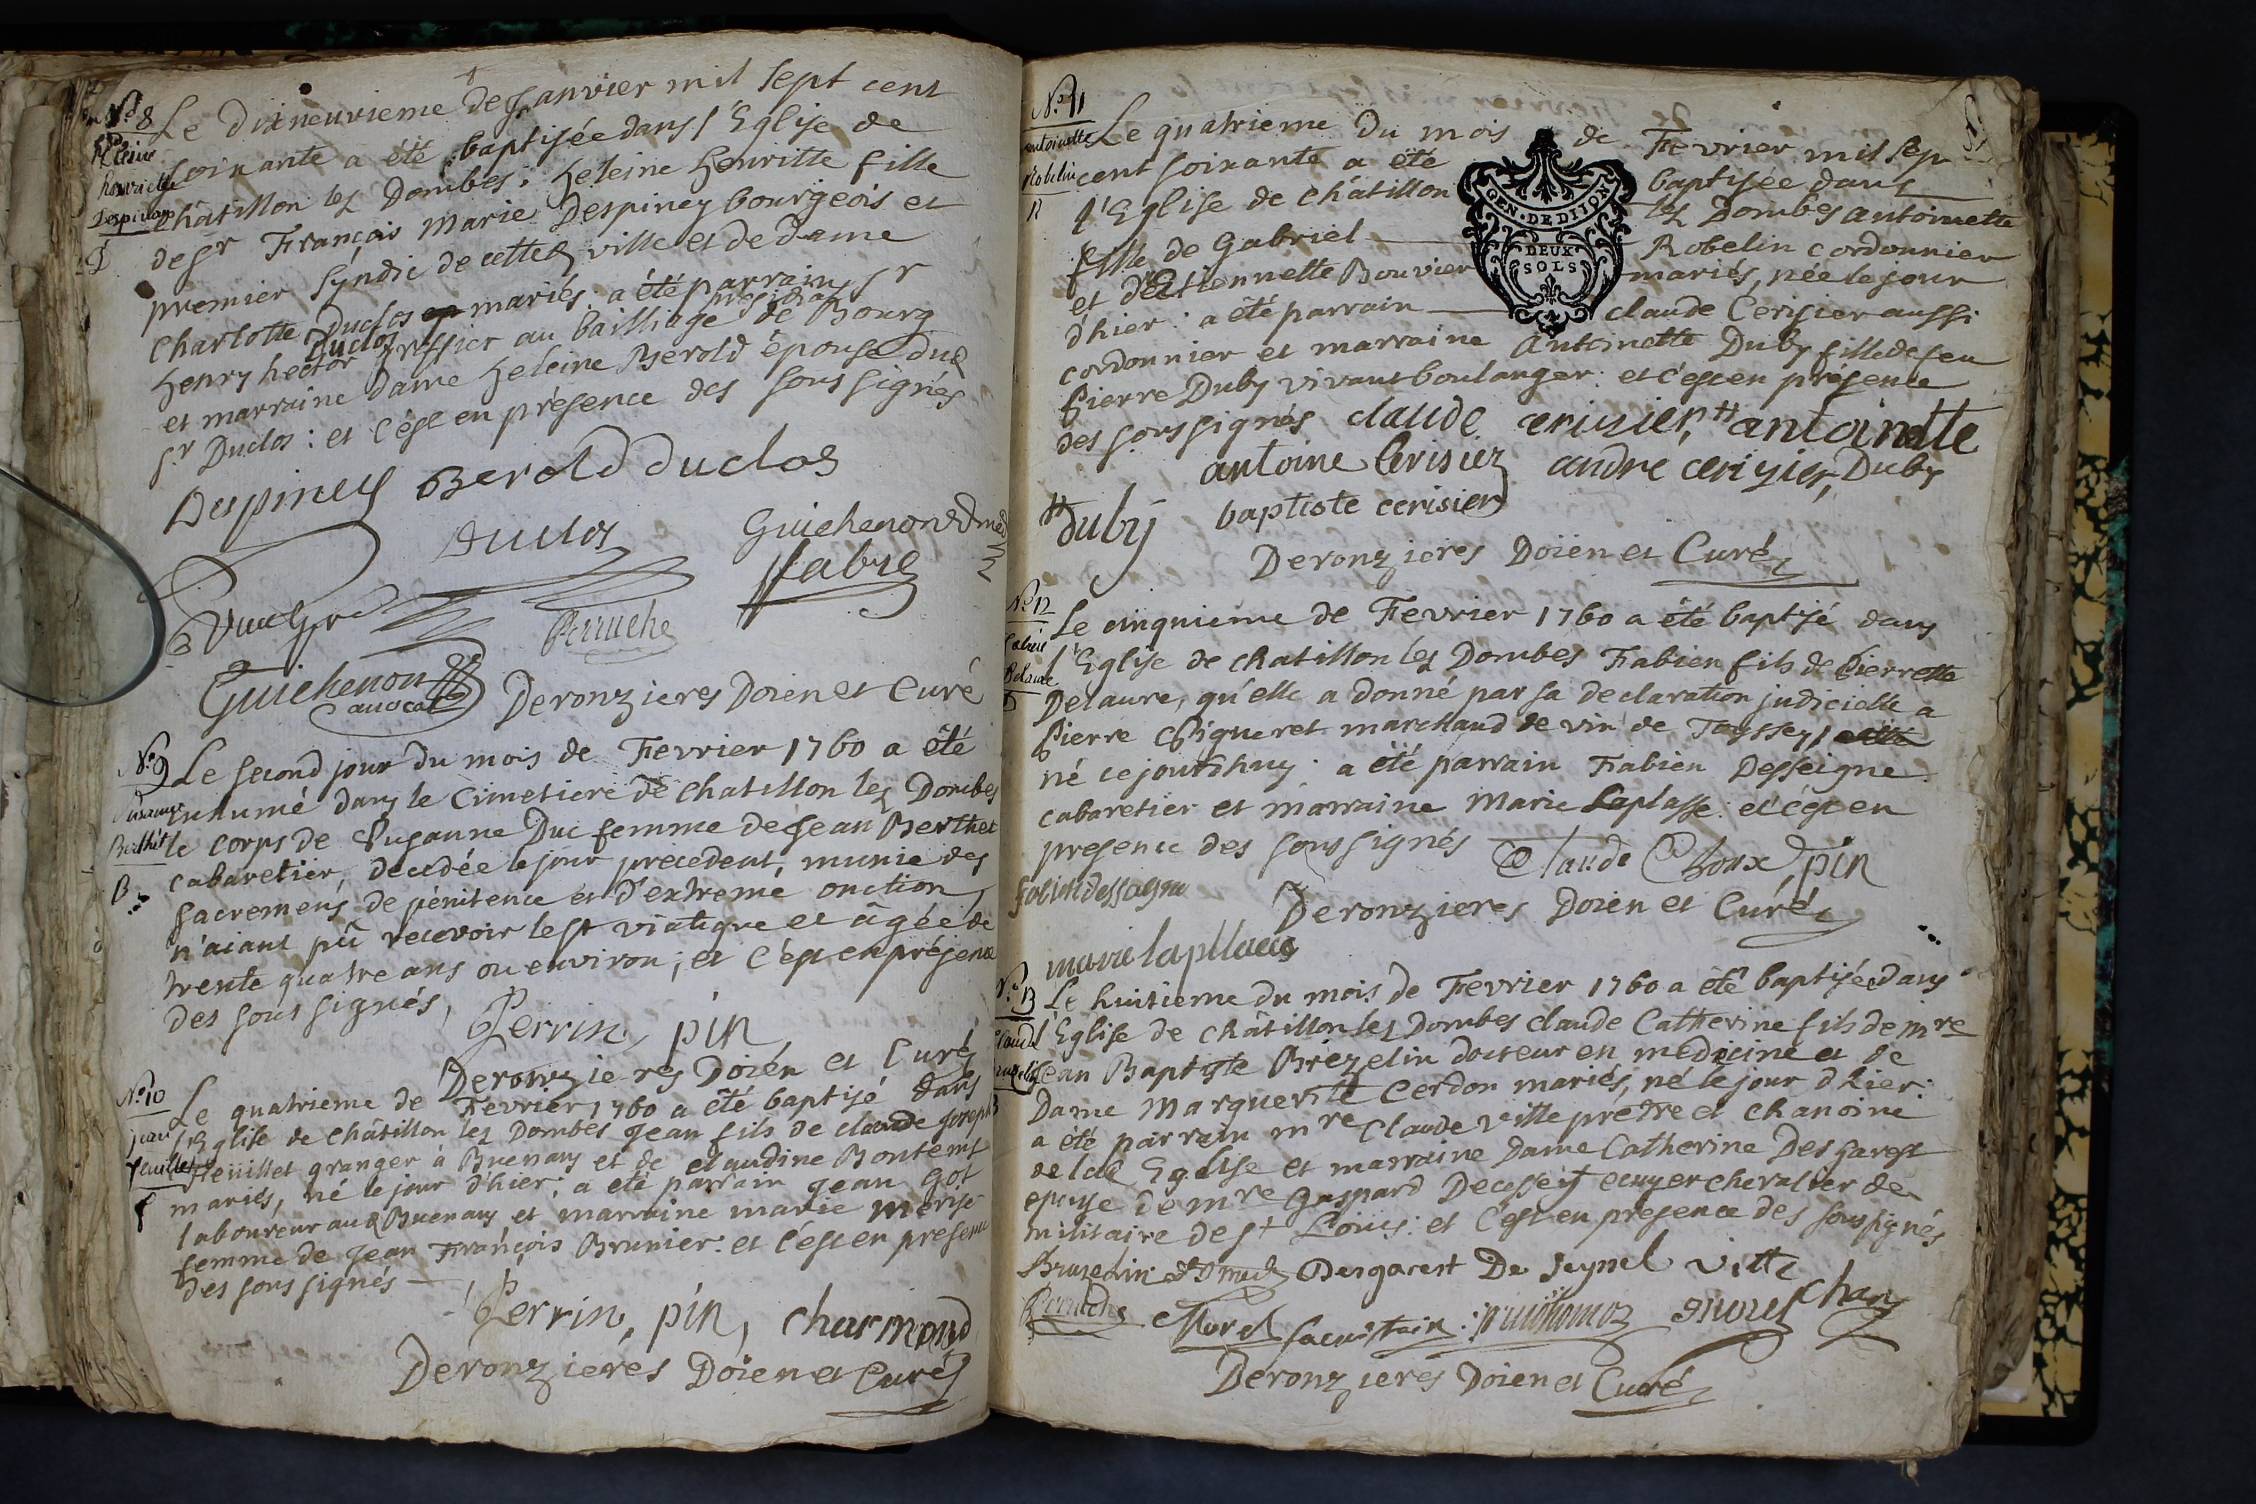 N.º 8
Heleine
henriette
Despiney
Le dixneuvieme de Janvier mil sept cent
soixante a été baptisée dans l'Eglise de
châtillon lez Dombes; heleine henritte fille
de Sr François Marie Despiney bourgeois et
premier Syndic de cette ville et de dame
charlotte Duclos mariés: a été parrain Sr
henry hector Duclos greffier au bailliage presidial de Bourg
et marraine dame heleine Berold épouse dud
Sr Duclos: et c'est en présence des soussignés
Despiney Berold duclos
Duclos Guichenon
fabre
Perruche
Guichenon avocat Deronzieres Doïen et Curé
N.º 9
Susanne
Berthet
B
Le second jour du mois de Fevrier 1760 a été
inhumé dans le Cimetiere de chatillon lez Dombes
le corps de Susanne Duc femme de Jean Berthet
cabaretier, decedée le jour precedent, munie des
sacremens de pénitence et d'extreme onction
n'aiant pû recevoir le St viatique et âgée de
trente quatre ans ou environ; et c'est en présence
des sous signés,
Perrin, pin
Deronzieres Doïen et Curé
N.º 10
jean
feuillet
f
Le quatrieme de Fevrier 1760 a été baptisé dans
l'Eglise de châtillon lez Dombes Jean fils de claude Joseph
feuillet granger à Buenans et de claudine Bontemt
mariés, né le jour d'hier; a été parrain Jean Got
laboureur aud Buenans et marraine marie merise
femme de Jean François Brunier: et c'est en presence
des sous signés
Perrin, pin, charmond
Deronzieres Doïen et Curé
N.º 11
antoinette
Robelin
R
Le quatrieme du mois de Fevrier mil sep
cent soixante a été baptisée dans
l'Eglise de châtillon lez Dombes antoinette
fille de Gabriel Robelin cordonnier
et d'Etiennette Bouvier mariés, née le jour
d'hier: a été parrain claude Cerisier aussi
cordonnier et marraine Antoinette Duby fille de feu
Pierre Duby vivant boulanger: et c'est en présence
des sous signés claude cerisier, antoinette
antoine Cerisier andre cerisier, Duby
duby baptiste cerisier
Deronzieres Doïen et Curé
GEN. DE DIJON
DEUX
SOLS
N.º 12
Delaure
Le cinquieme de Fevrier 1760 a été baptisé dans
l'Eglise de chatillon lez Dombes Fabien fils de Pierrette
Delaure, qu'elle a donné par sa declaration judicielle a
Pierre Pigueret marchand de vin de Toyssey,
né ce jourdhuy: a été parrain Fabien Desseigne
cabaretier et marraine Marie Laplasse: et c'est en
presence des sous signés Claude Choux, pin
Deronzieres Doïen et Curé
marie lapllace
N.º 13
Le huitieme du mois de Fevrier 1760 a été baptisée dans
l'Eglise de châtillon lez Dombes claude Catherine fils de mre
Jean Baptiste Brezelin docteur en medecine et de
Dame Marguerite Cerdon mariés, né le jour d'hier:
a été parrain mre Claude Vitte pretre et chanoine
de lad Eglise et marraine Dame Catherine Desgarest
epouse de mre Gaspard Deceseyt ecuyer chevalier de
militaire de St Loüis: et c'est en presence des soussignés
Desgarest De seynel vitte chan
Perruche Morel
Deronzieres Doïen et Curé